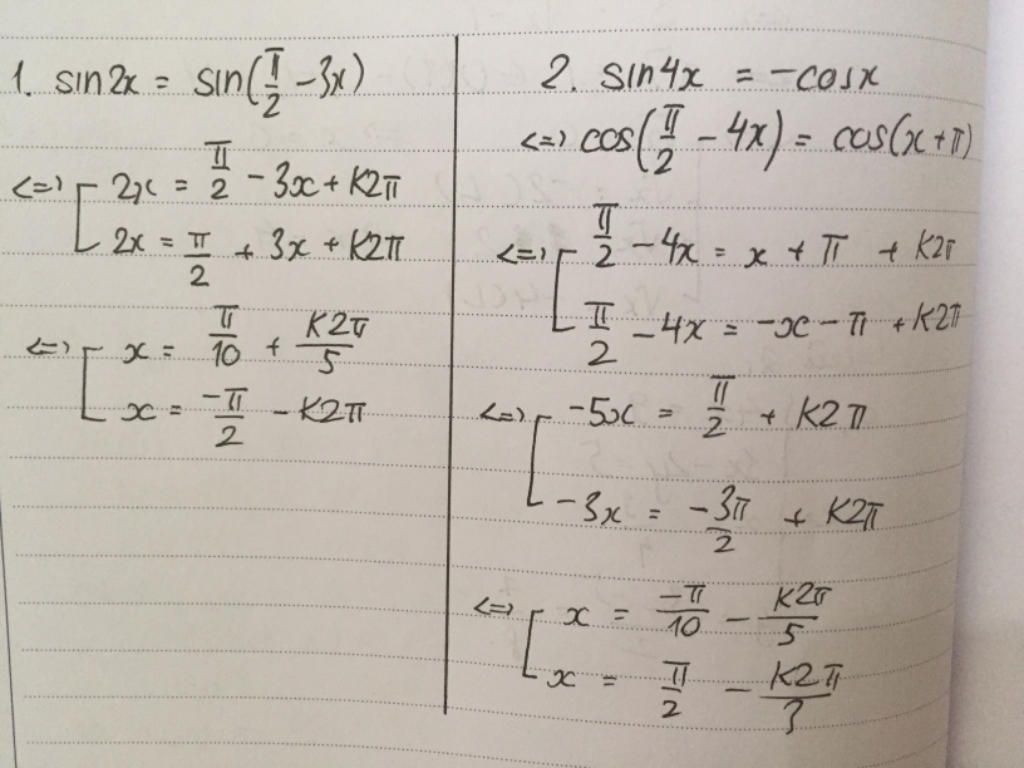 1. sin2x = sin(π/2 - 3x)
<=> [ 2x = π/2 - 3x + K2π
2x = π/2 + 3x + K2π
<=> [ x = π/10 + K2π/5
x = -π/2 - K2π
2. sin4x = -cosx
<=> cos(π/2 - 4x) = cos(x+π)
<=> [ π/2 - 4x = x + π + K2π
π/2 - 4x = -x - π + K2π
<=> [ -5x = π/2 + K2π
-3x = -3π/2 + K2π
<=> [ x = -π/10 - K2π/5
x = π/2 - K2π/3